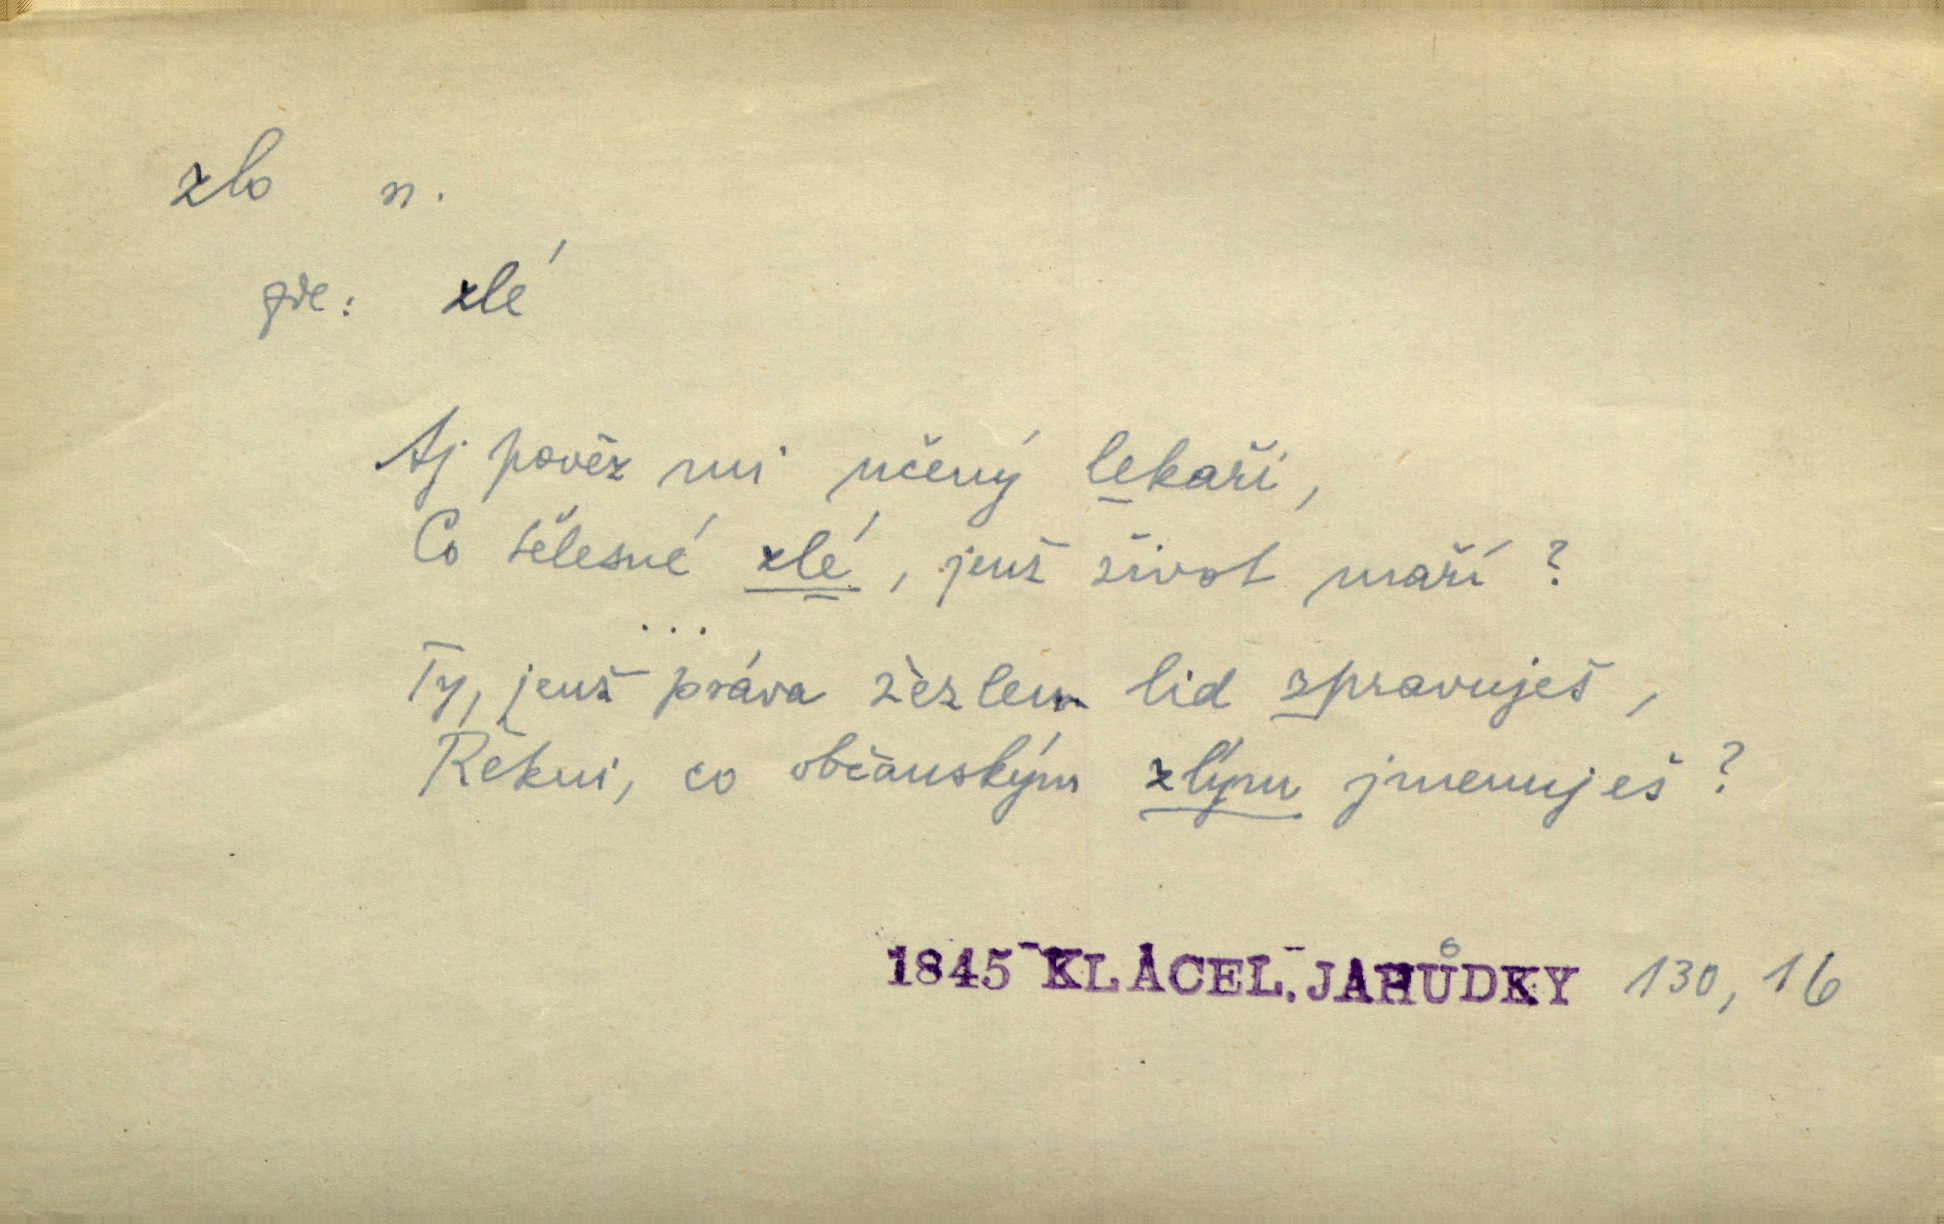 zlo n.
gde: zlé
Aj pověz mi učený lekaři,
Co tělesné zlé, jenž život maří?
...
Ty, jenž práva žezlem lid zpravuješ,
Řekni, co občanským zlým jmenuješ?
1845 - KLÁCEL. - JAHŮDKY 130, 16